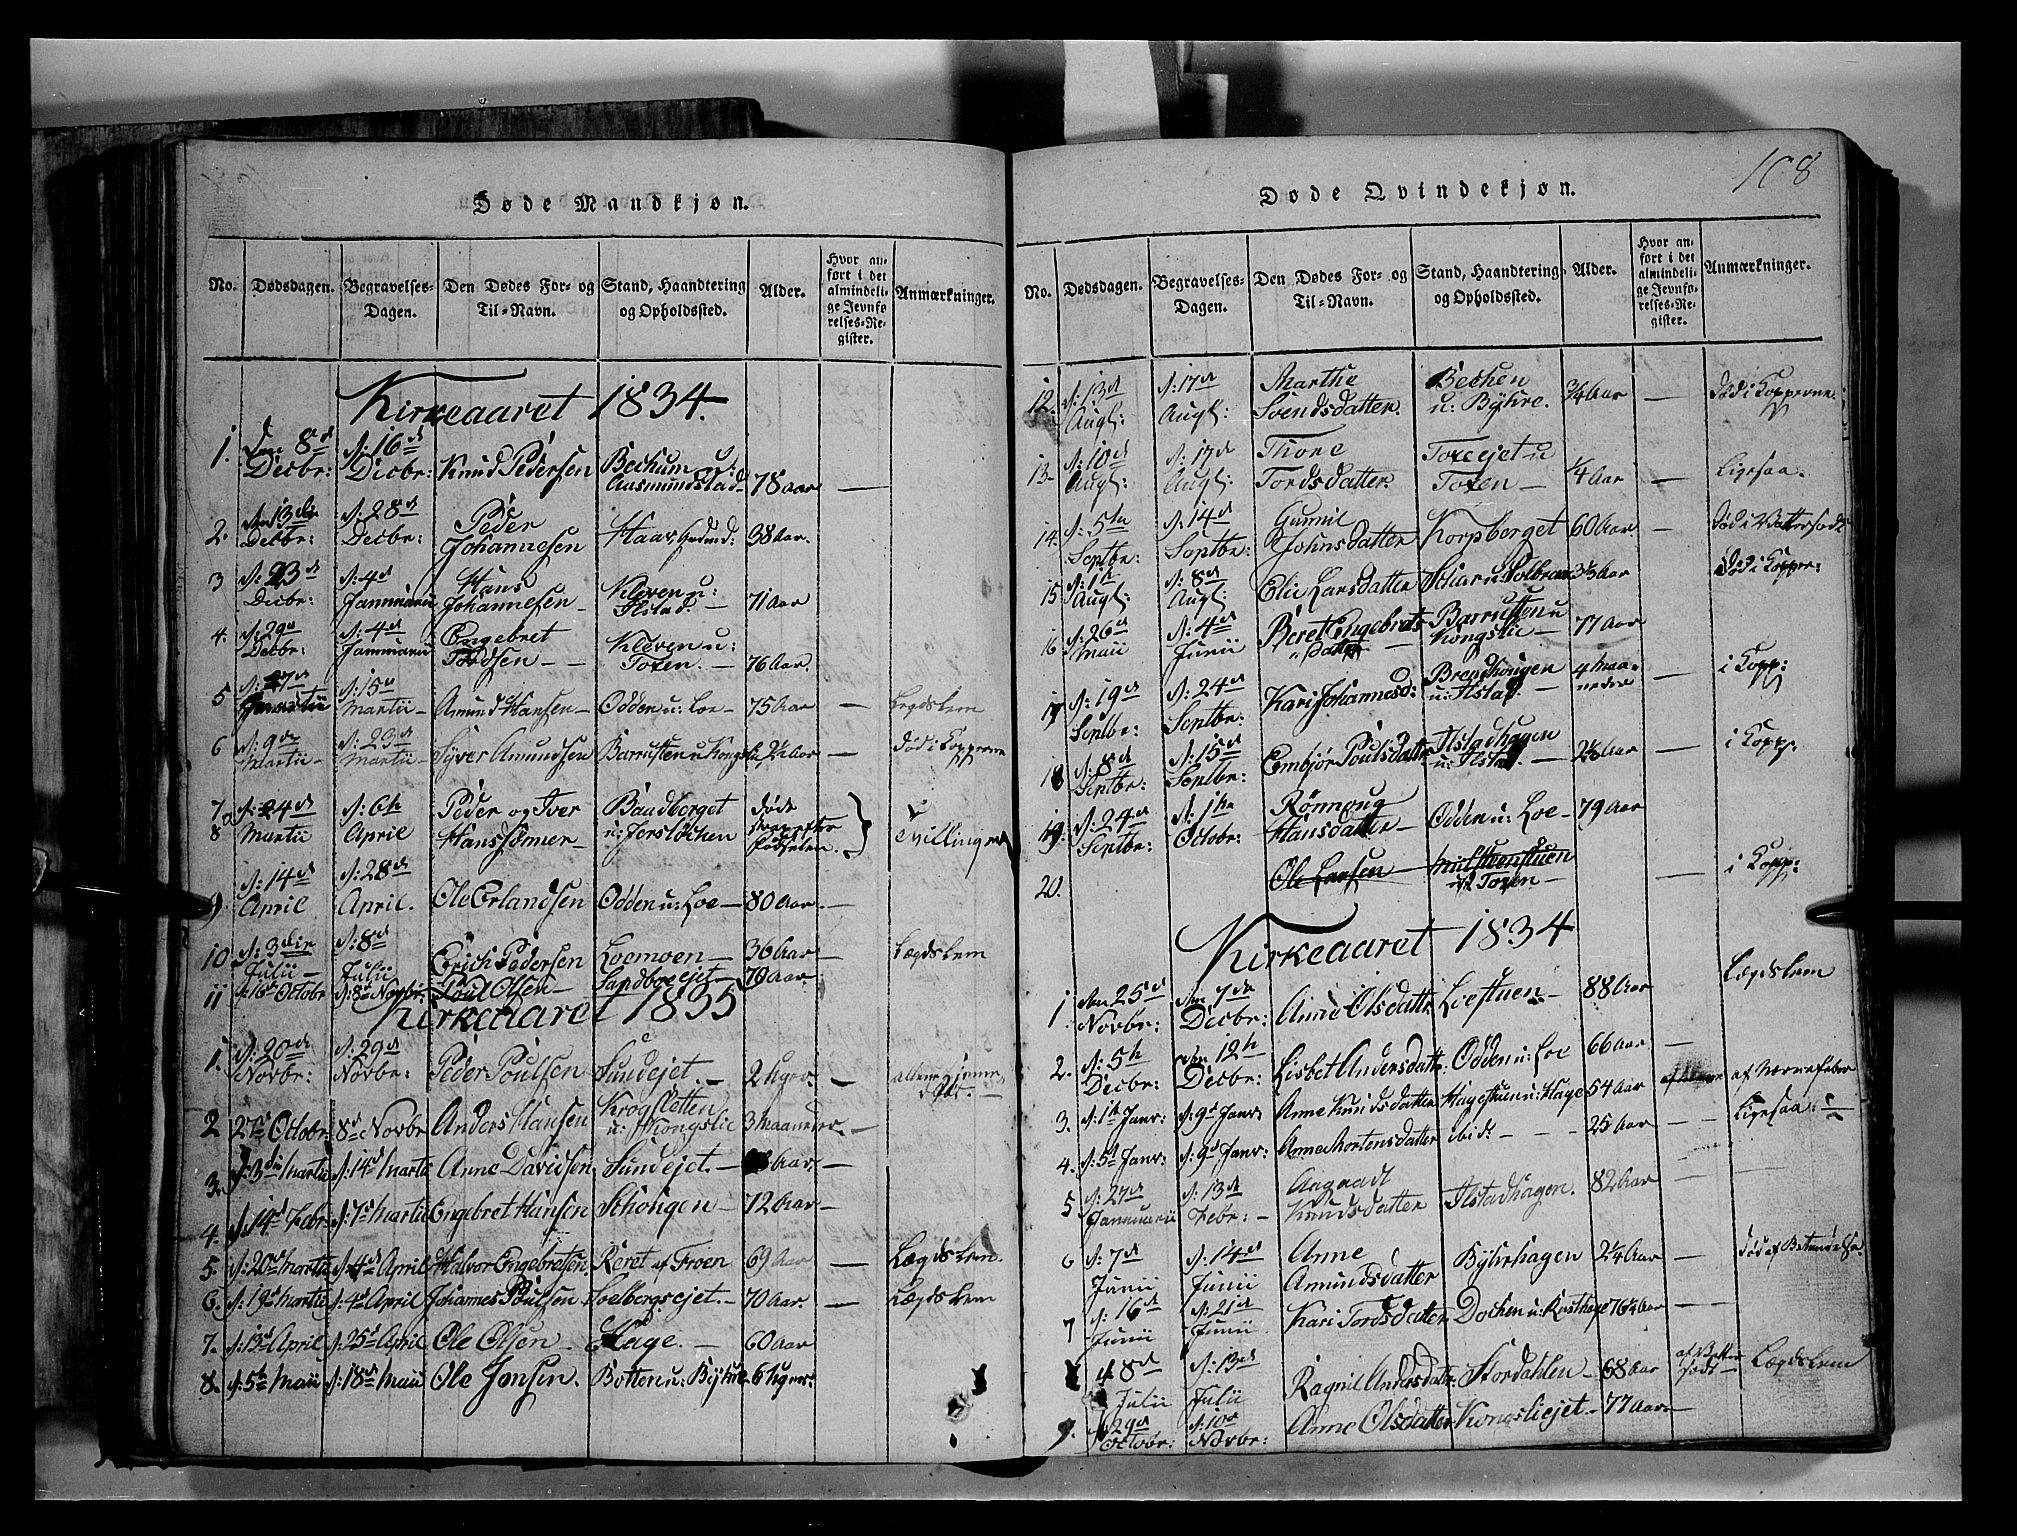 108
Døde Mandkjøn.
No. Dødsdagen. Begravelses-Dagen. Den Dødes For- og Til-Navn. Stand, Haandtering og Opholdssted. Alder. Hvor anført i det almindelige Jevnførelses-Register. Anmærkninger.
Kirkeaaret 1834.
1. Den 8de Decbr: d: 16de Decbr: Knud Pedersen Beckum u: Aasmundstad 78 aar —
2. den 13de Decbr: d: 28de Decbr: Peder Johannesen Haar Grund: 38 Aar.
3 d: 23de Decbr: d: 4de Januarii Hans Johannesen Kleven u: Ilstad 71 Aar
4. d: 29de Decbr: d: 4de Januarii Engebret Tordsen Kleven u: Toxen. 76 Aar
5 d: 7de Martii d: 15de Martii Amund Hansen Odden u: Loe 75 Aar — Lægdslem
6 d: 9de Martii d: 23de Martii Syver Amundsen Barrusten u Kongslie 2½ Aar — Død i Kopperne
7 & 8 d: 24de Martii d: 6te April Peder og Iver Hanssønner Baadberget u: Jerslochen døde strax efter Fødselen Tvillinger
9. d: 14de April d: 28de April. Ole Erlandsen Odden u: Loe 80 Aar. —
10 d: 3die Julii d: 8de Julii Erich Pedersen Loemoen 36 Aar — Lægdslem
11 d: 16de Octobr d: 8de Novbr: Poul Olsen Sandboeejet 70 Aar.
Kirkeaaret 1835
1. d: 20de Novbr: d: 29de Novbr: Peder Poulsen Sundejet. 2 Uger. —
2 27de Octobr: 8de Novbr Anders Hansen Krogsletten u: Kongslie 3 Maaneder. —
3. d: 3die Martii d: 14de Martii Anne Davidsen Sundejet. Aar. —
4. d: 14de Febr: d: 1ste Martii Engebret Hansen Schougen 72 Aar —
5. d: 20de Martii d: 4de April Halvor Engebretsen Reret af Froen 69 Aar — Lægdslem.
6. d: 19de Martii d: 4de April Johannes Poulsen Soelbergsejet. 70 Aar. — Lægdslem
7. d: 13de April d: 25de April Ole Olsen Hage. 60 Aar
8. d: 5te Maii d: 18de Maii Ole Jonsen. Botten u: Byhre 6 Uger:
Døde Qvindekjøn.
No. Dødsdagen. Begravelses-Dagen. Den Dødes For- og Til-Navn. Stand, Haandtering og Opholdssted. Alder. Hvor anført i det almindelige Jevnførelses-Register. Anmærkninger.
12. d: 13de Augl: d: 17de Augl: Marthe Svendsdatter. Bechen u: Byhre. ¾ Aar — Død i Kopperne
13. d: 10de Augl: d: 17de Augl: Thore Tordsdatter. Toxeejet u Toxen ¼ Aar — Ligesaa.
14 d: 5te Septbr: d: 14de Septbr: Gunnil Johnsdatter Korpberget 60 Aar — Død i Vattersodt
15 d: 1ste Augl: d: 8de Augl: Elie Larsdatter Aar Død i Kopper:
16 d: 26de Maii d: 4de Junii Beret Engebretsdatter Barrusten u Kongslie 77 Aar
17 d: 19de Septbr: d: 24de Septbr: Kari Johannesd: Brendhougen u: Ilstad. 4 maaneder — i Kopp:
18 d: 8de Septbr: d: 15de Septbr: Embjør Poulsdatter Ilstadhagen u: Ilstad. Aar — i Kopp:
19. d: 29de Septbr: d: 1ste Octobr: Rønnoug Hansdatter Odden u: Loe 79 Aar
20. Ole Larsen u: Toxen — i Kopp:
Kirkeaaret 1834
1. den 25de Novbr: den 7de Decbr: Anne Olsdattr. Loestuen 88 Aar Lægdslem
2. d: 5te Decbr: den 12te Decbr: Lisbet Andersdattr. Odden u: Loe 66 Aar —
3. d: 1ste Janr: d: 9de Janr: Anne Knudsdatter Hagestuen u: Hage 54 Aar af Nervefeber
4. d: 5te Janr: d: 9de Janr: Anne Mortensdatter ibid: 25 Aar — Ligesaa:
5 d: 27de Januarii d: 13de Febr: Aagaadt Knudsdatter Ilstadhagen. 82 Aar —
6 d: 7de Junii d: 14de Junii Anne Amundsdatter Byhrhagen 2¼ Aar — Død af Betændelse
7 d: 16de Junii d: 21de Junii Kari Tordsdatter Dochen u: 76 Aar —
8 d: 8de Julii d: 13de Julii Ragnil Andersdatter Stordahlen 68 Aar af Vattersodt Lægdslem
9. d: 29de Octobr: d: 10de Novbr: Anne Olsdatter Kongsliejet 77 Aar —